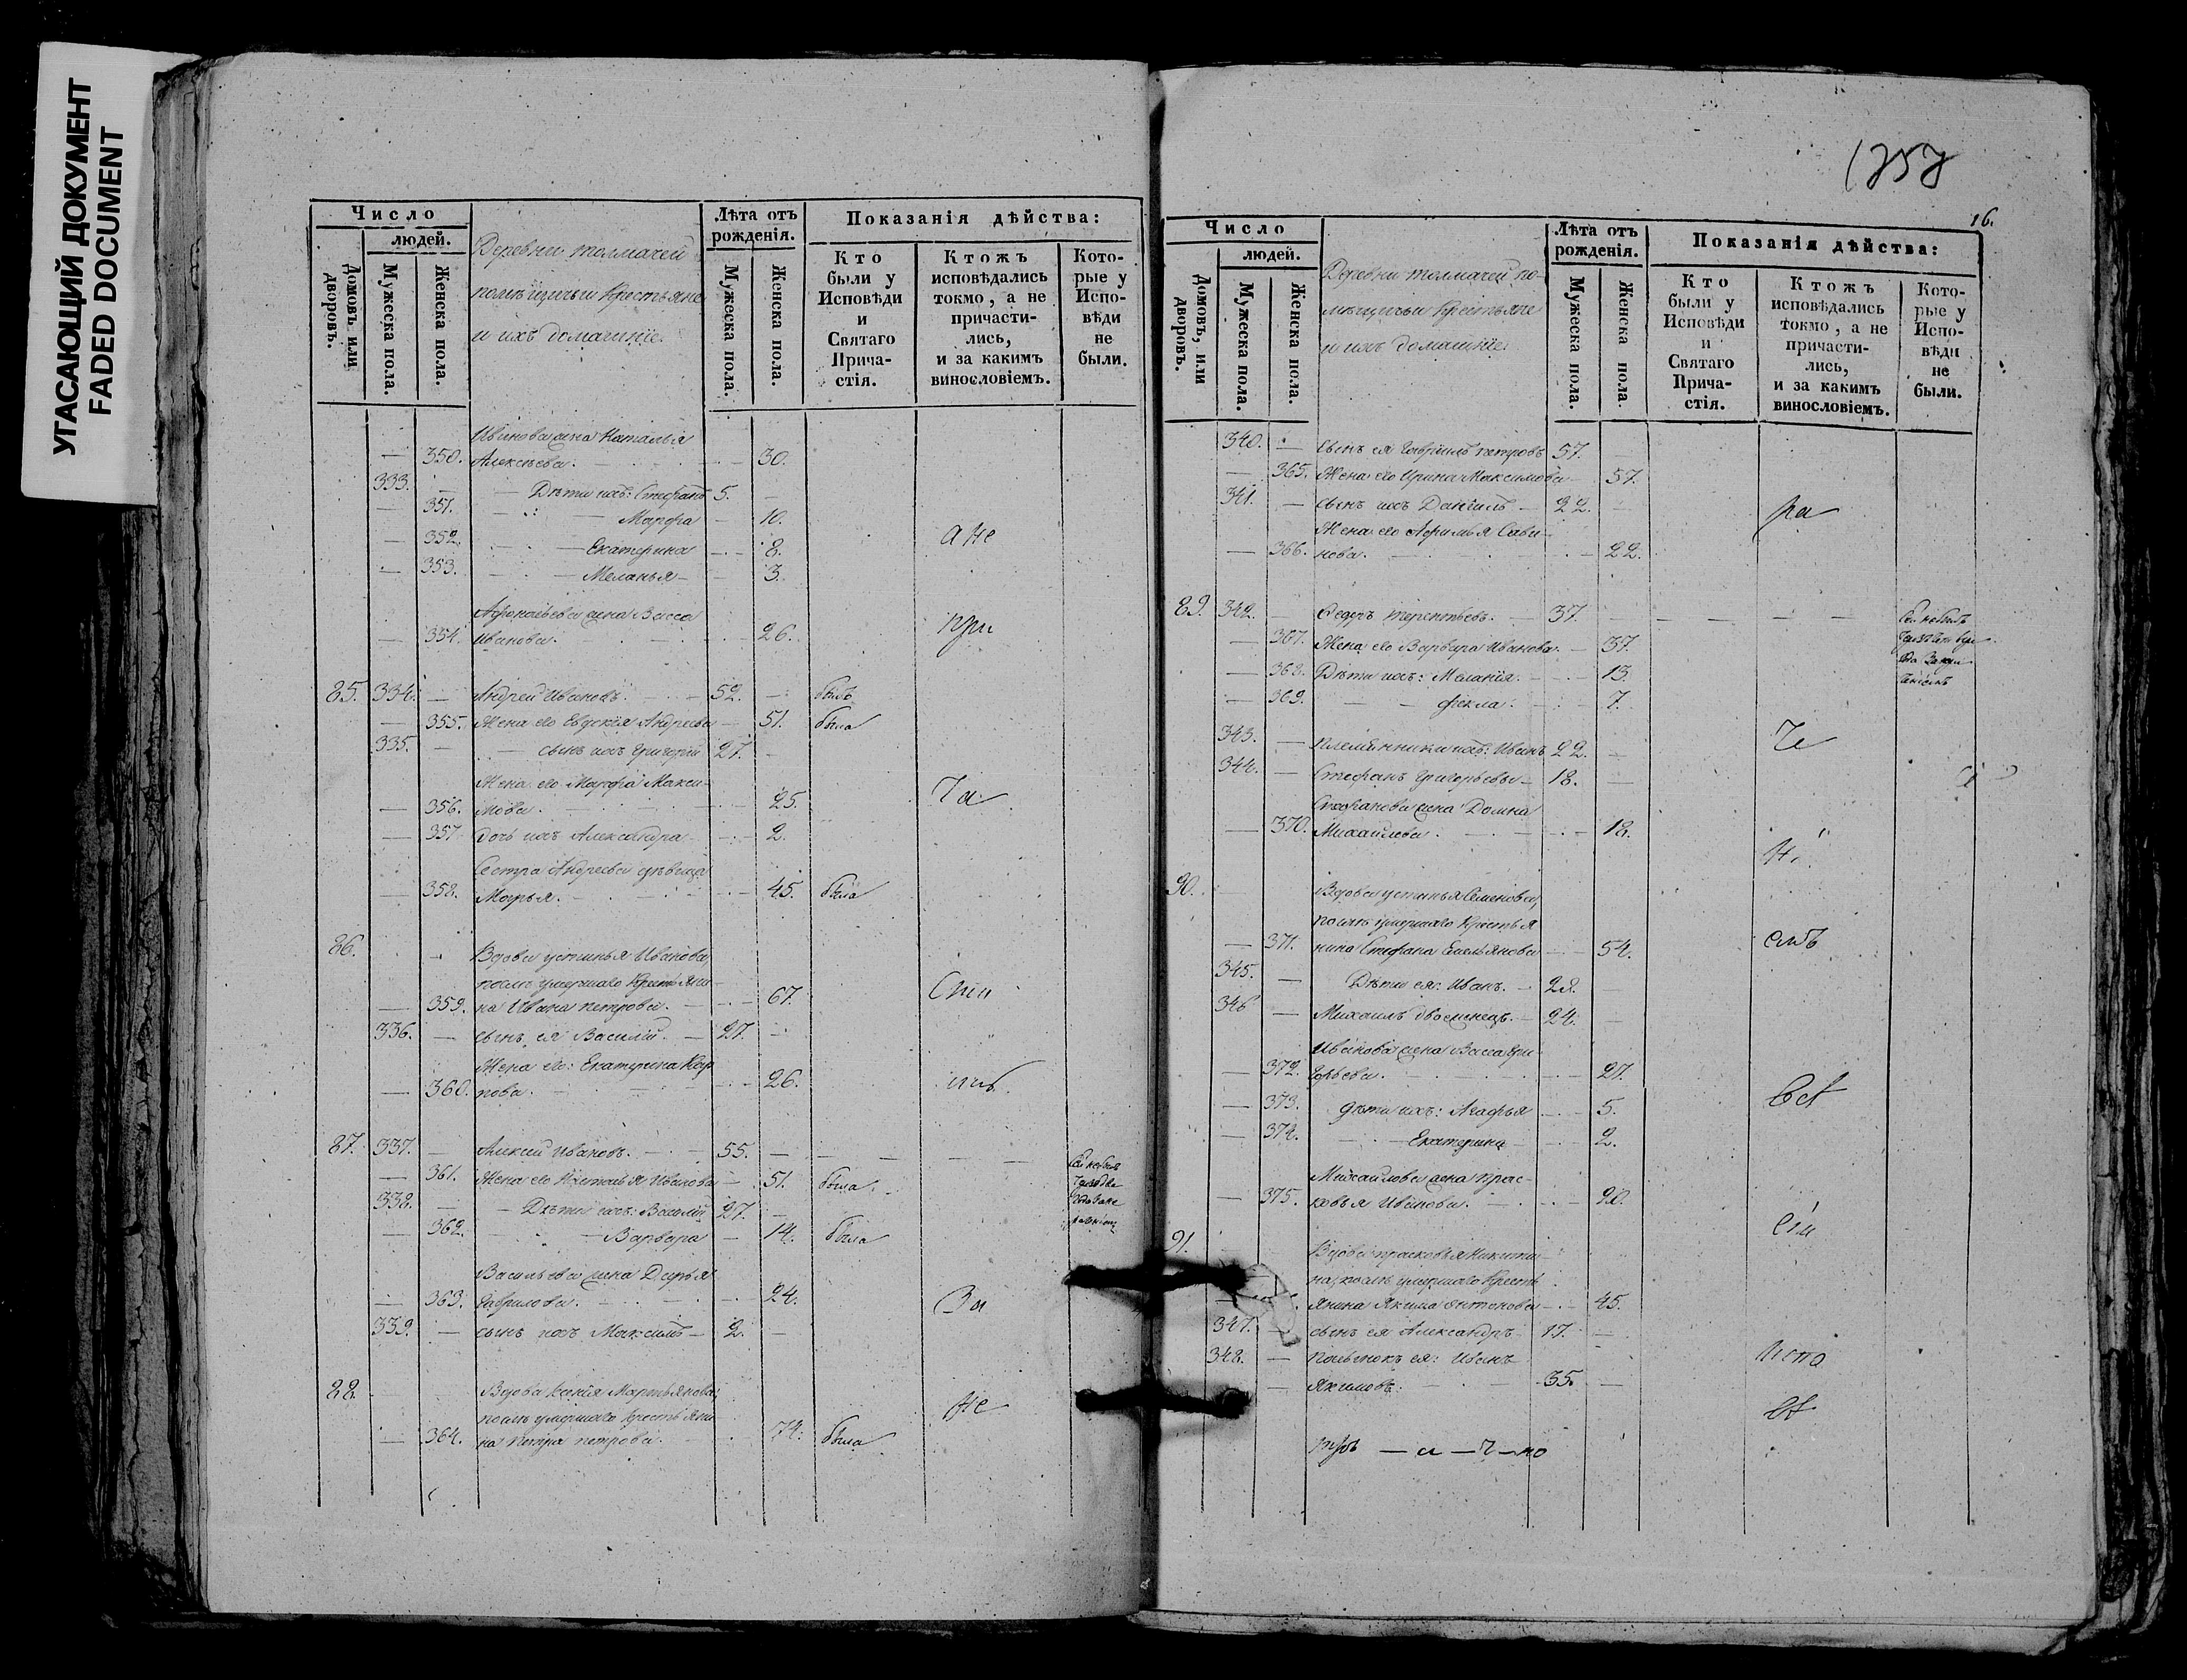 УГАСАЮЩИЙ ДОКУМЕНТ
FADED DOCUMENT
Число
людей.
Домовъ или дворовъ.
Мужеска пола.
Женска пола.
Деревни толмачей
помѣщичьи крестьяне
и ихъ домашніе.
Лѣта отъ рожденія.
Мужеска пола.
Женска пола.
Показанія дѣйства:
Кто были у Исповѣди и Святаго Прича-стія.
Ктожъ исповѣдались токмо, а не причасти-лись, и за какимъ винословіемъ.
Кото-рые у Испо-вѣди не были.
Иванова жена Наталья
— 350. Алексѣева. 30.
333. — Дѣти ихъ: Стефанъ 5. —
— 351. Марфа — 10.
— 352. Екатерина — 8. а не
— 353. Меланья — 3.
Афонасьева жена Васса
— 354. Иванова. 26. при
85. 334. — Андрей Ивановъ. 52. — былъ
— 355. Жена его Евдокія Андреева — 51. была
335. — сынъ ихъ Григорій 27. —
Жена его Марфа Макси-
— 356. мова. 25. ча
— 357. Дочь ихъ Александра 2.
Сестра Андреева дѣвица
— 358. Марья. 45. была
86. Вдова Устинья Иванова
послѣ умершаго крестьяни-
— 359. на Ивана Петрова. 67. сти
336. — сынъ ея Василій. 27. —
Жена его: Екатерина Кар
— 360. пова. 26.
87. 337. — Алексѣй Ивановъ. 55. —
— 361. Жена его Наталья Иванова — 51. была
338. — Дѣти ихъ: Василій 27. —
— 362. Варвара — 14. была
Васильева жена Дарья
— 363. Гаврилова. 24. за
339. — сынъ ихъ Максимъ 2. —
88. Вдова Ксенія Мартьянова,
послѣ умершаго крестьяни- не
— 364. на Петра Петрова. 74. была
1757
16.
Число
людей.
Домовъ, или дворовъ.
Мужеска пола.
Женска пола.
Деревни толмачей по-
мѣщичьи крестьяне
и ихъ домашніе.
Лѣта отъ рожденія.
Мужеска пола.
Женска пола.
Показанія дѣйства:
Кто были у Исповѣди и Святаго Прича-стія.
Ктожъ исповѣдались токмо, а не причасти-лись, и за какимъ винословіемъ.
Кото-рые у Испо-вѣди не были.
340. — сынъ ея Гаврiилъ Петровъ 57. —
— 365. Жена его Ирина Максимова — 57.
341. — сынъ ихъ Данiилъ 22. — ра
Жена его Афимья Сави-
— 366. нова. 22.
89. 342. — Федоръ Терентьевъ. 37.
— 367. Жена его Варвара Иванова. — 37.
— 368. Дѣти ихъ: Меланія. 13.
— 369. Фекла. 7.
343. — Племянники ихъ: Иванъ 22. — че
344. — Стефанъ Григорьевы 18. —
Стефанова жена Домна
— 370. Михайлова. 18.
90. Вдова Устинья Семенова,
послѣ умершаго крестья
— 371. нина Стефана Емельянова 54.
345. — Дѣти ея: Иванъ. 28. —
346 — Михаилъ двоеженецъ. 24. —
Иванова жена Васса Гри-
— 372. горьева. 27.
— 373. Дѣти ихъ: Агафья 5.
— 374. Екатерина 2.
Михайлова жена Прас-
— 375. ковья Иванова. 20.
91. Вдова Прасковья Никити-
на, послѣ умершаго кресть
янина Якима Антонова 45.
347. — сынъ ея Александръ 17. —
348. — Пасынокъ ея: Иванъ
— Якимовъ. 35. —